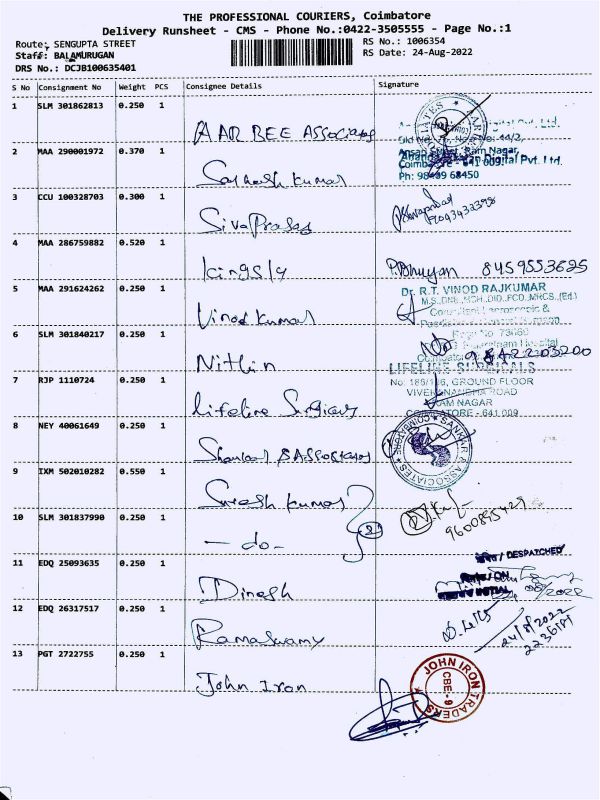 THE PROFESSIONAL COURIERS, Coimbatore
Delivery Runsheet - CMS - Phone No.:0422-3505555 - Page No.:1
Route: SENGUPTA STREET
RS No.: 1006354
Staff: BALAMURUGAN
RS Date: 24-Aug-2022
DRS No.: DCJB100635401
S No Consignment No Weight PCS Consignee Details Signature
1 SLM 301862813 0.250 1
AAR BEE ASSOCIATES
2 MAA 290001972 0.370 1
Ansari Street, Ram Nagar,
Digital Pvt. Ltd.
Santhosh Kumar
3 CCU 100328703 0.300 1
SivaPrasad
4 MAA 286759882 0.520 1
Kingsly
8459553625
5 MAA 291624262 0.250 1
Dr. R.T. VINOD RAJKUMAR
Vinod Kumar
6 SLM 301840217 0.250 1
Nithin
LIFELINE SURGICALS
7 RJP 1110724 0.250 1
GROUND FLOOR
VIVEKANANDHA ROAD
RAM NAGAR
Lifeline Surgicals
COIMBATORE - 641 009
8 NEY 40061649 0.250 1
SANKAR & ASSOCIATES
COIMBATORE
Shankar & Associates
9 IXM 502010282 0.550 1
Suresh Kumar
10 SLM 301837990 0.250 1
2
9600895429
- do -
11 EDQ 25093635 0.250 1
/ DESPATCHED
/ ON
INITIAL
Dinesh
12 EDQ 26317517 0.250 1
24/8/2022
Ramaswamy
13 PGT 2722755 0.250 1
JOHN IRON TRADERS
CBE-9
John Iron